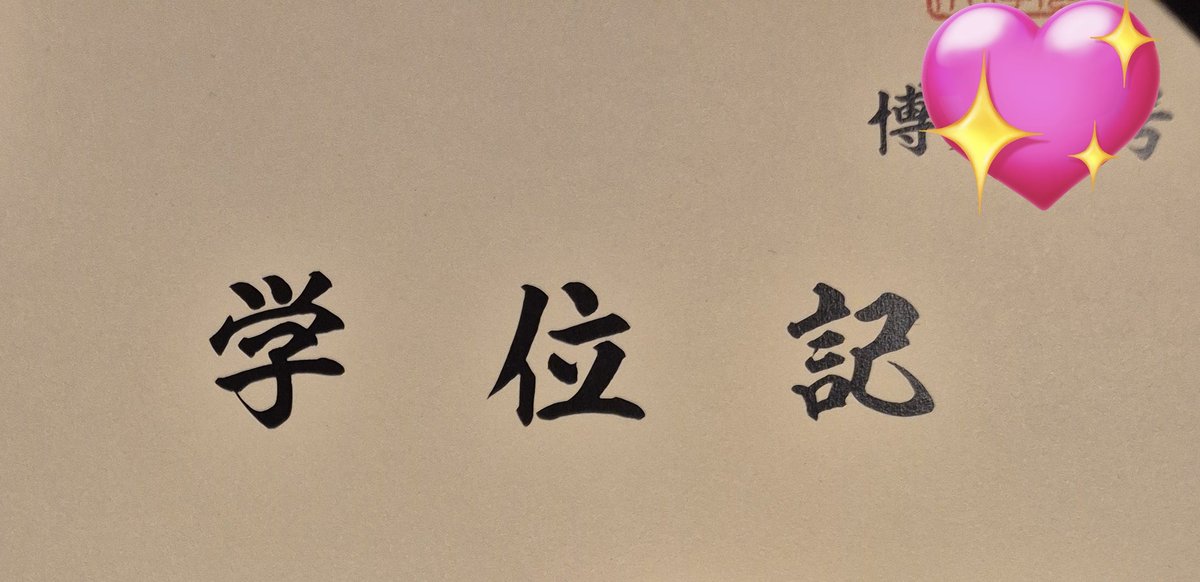 博 号
学位記